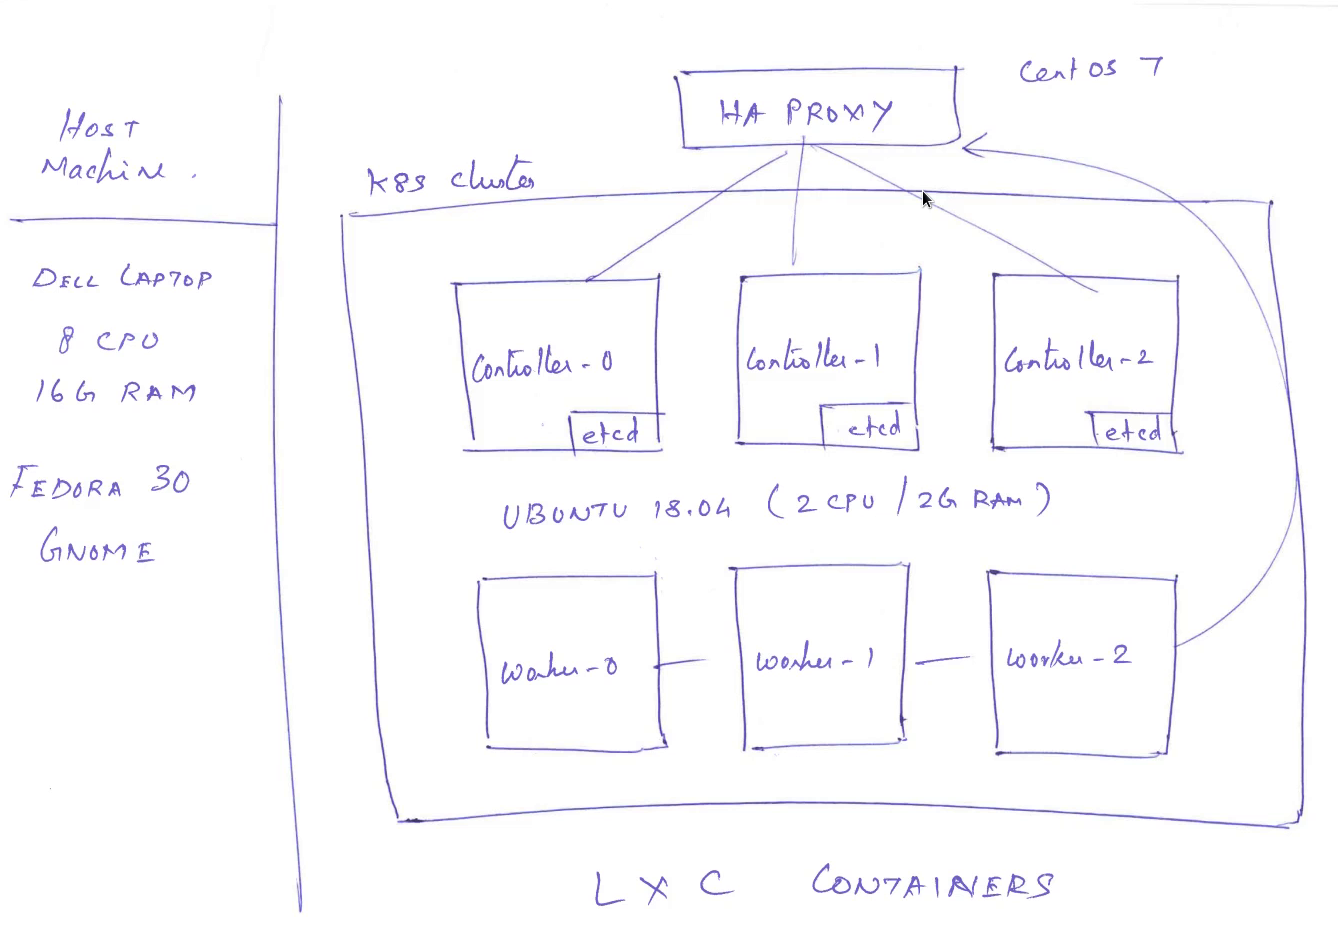 Host
Machine.
Dell Laptop
8 CPU
16G RAM
Fedora 30
Gnome
Cent OS 7
HA PROXY
K8s cluster
Controller-0
etcd
Controller-1
etcd
Controller-2
etcd
UBUNTU 18.04 (2 CPU / 2G RAM)
Worker-0
Worker-1
Worker-2
LXC CONTAINERS